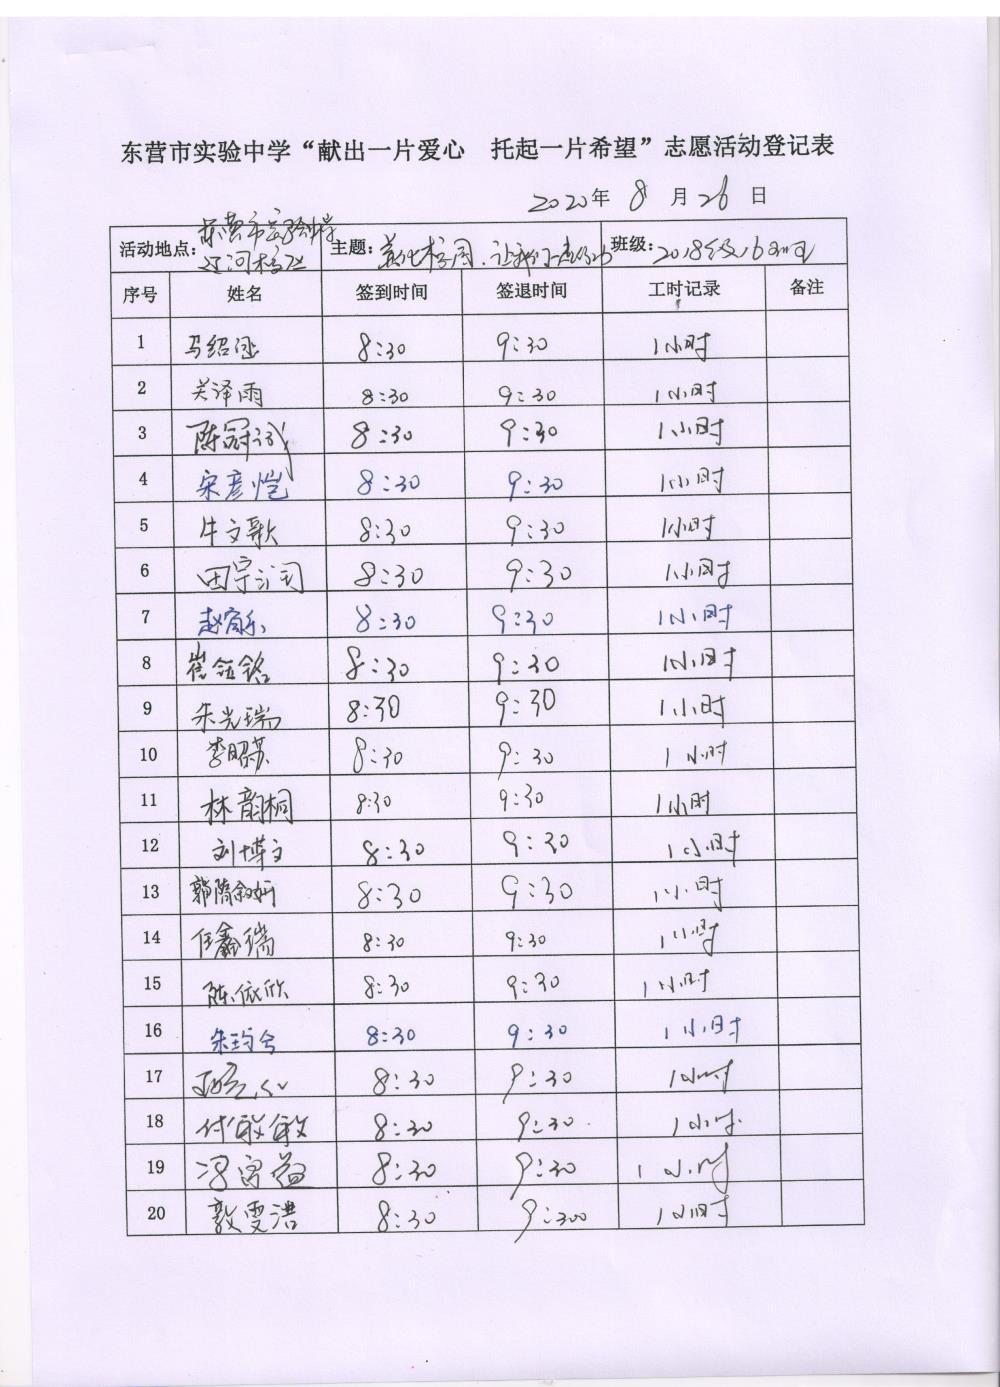 东营市实验中学“献出一片爱心 托起一片希望”志愿活动登记表
2020年 8 月 26 日
活动地点：东营市实验中学 辽河校区 主题：美化校园，让我们一起行动 班级：2018级16班
序号 姓名 签到时间 签退时间 工时记录 备注
1 马绍涵 8:30 9:30 1小时
2 关泽雨 8:30 9:30 1小时
3 陈冠诚 8:30 9:30 1小时
4 宋彦恺 8:30 9:30 1小时
5 牛文歌 8:30 9:30 1小时
6 田宇润 8:30 9:30 1小时
7 赵宥乐 8:30 9:30 1小时
8 崔钰铭 8:30 9:30 1小时
9 朱光瑞 8:30 9:30 1小时
10 李昭苏 8:30 9:30 1小时
11 林韵桐 8:30 9:30 1小时
12 刘博文 8:30 9:30 1小时
13 郭隋叙妍 8:30 9:30 1小时
14 任鑫瑞 8:30 9:30 1小时
15 陈依欣 8:30 9:30 1小时
16 朱玙兮 8:30 9:30 1小时
17 8:30 9:30 1小时
18 付敏敏 8:30 9:30 1小时
19 冯富益 8:30 9:30 1小时
20 敦雯浩 8:30 9:300 1小时